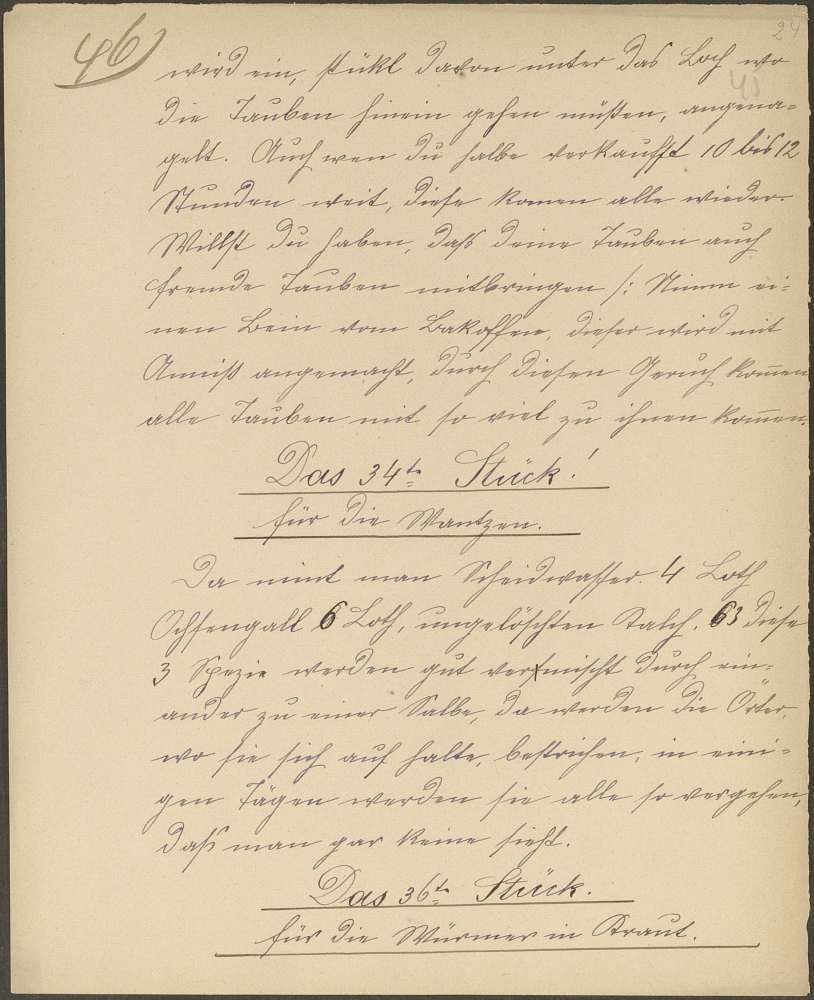 46
24
45
wird ein, stükl davon unter das Loch wo
die Tauben hinein gehen müßen, angena-
gelt. Auch wen du halbe verkaufft 10 bis 12
Stunden weit, diese komen alle wieder.
Willst du haben, daß deine Tauben auch
fremde Tauben mitbringen /: Nimm ei-
nen Lein vom Bakoffen, dieser wird mit
Anniß angemacht, durch diesen Geruch kom̅en
alle Tauben mit so viel zu ihnen kom̅en.
Das 34te Stück!
für die Wantzen.
Da nimt man Scheidwasser 4 Loth
Ochsengall 6 Loth, ungelöschten Kalch. 63 diese
3 Spezie werden gut vermischt durch ein-
ander zu einer Salbe, da werden die Örter,
wo sie sich auf halte, bestrichen, in eini-
gen Tägen werden sie alle so vergehen,
daß man gar keine sieht.
Das 36te Stück.
für die Würmer in Kraut.